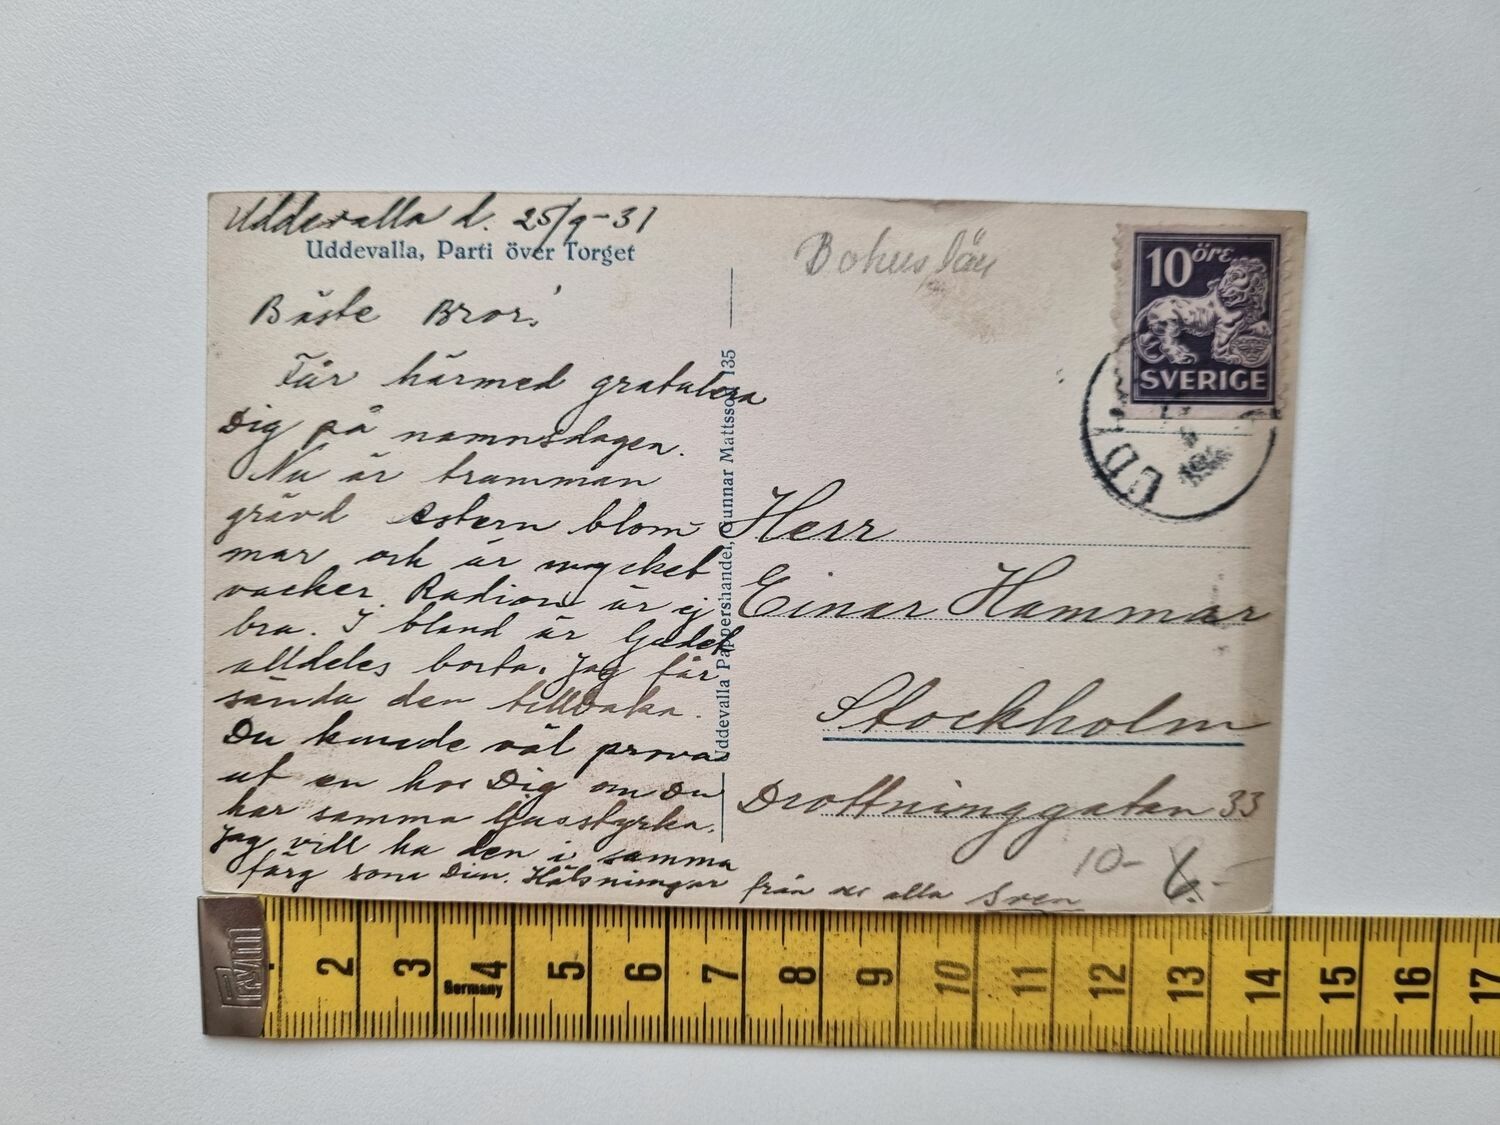 Uddevalla d. 25/9-31
Uddevalla, Parti över Torget
Bäste Bror!
Får härmed gratulera
Dig på namnsdagen.
Nu är tramman
grävd estern blom-
mar och är mycket
vacker. Radion är ej
bra. I bland är ljudet
alldeles borta. Jag får
sända den tillbaka.
Du kunde väl prova
ut en hos Dig om Du
har samma ljusstyrka.
Jag vill ha den i samma
färg som Din. Hälsningar från oss alla Sven
Uddevalla Pappershandel, Gunnar Mattsson 135
Bohuslän
10 öre
SVERIGE
UD
Herr
Einar Hammar
Stockholm
Drottninggatan 33
10-
6.-
Prym
2 3 4 5 6 7 8 9 10 11 12 13 14 15 16 17
Germany